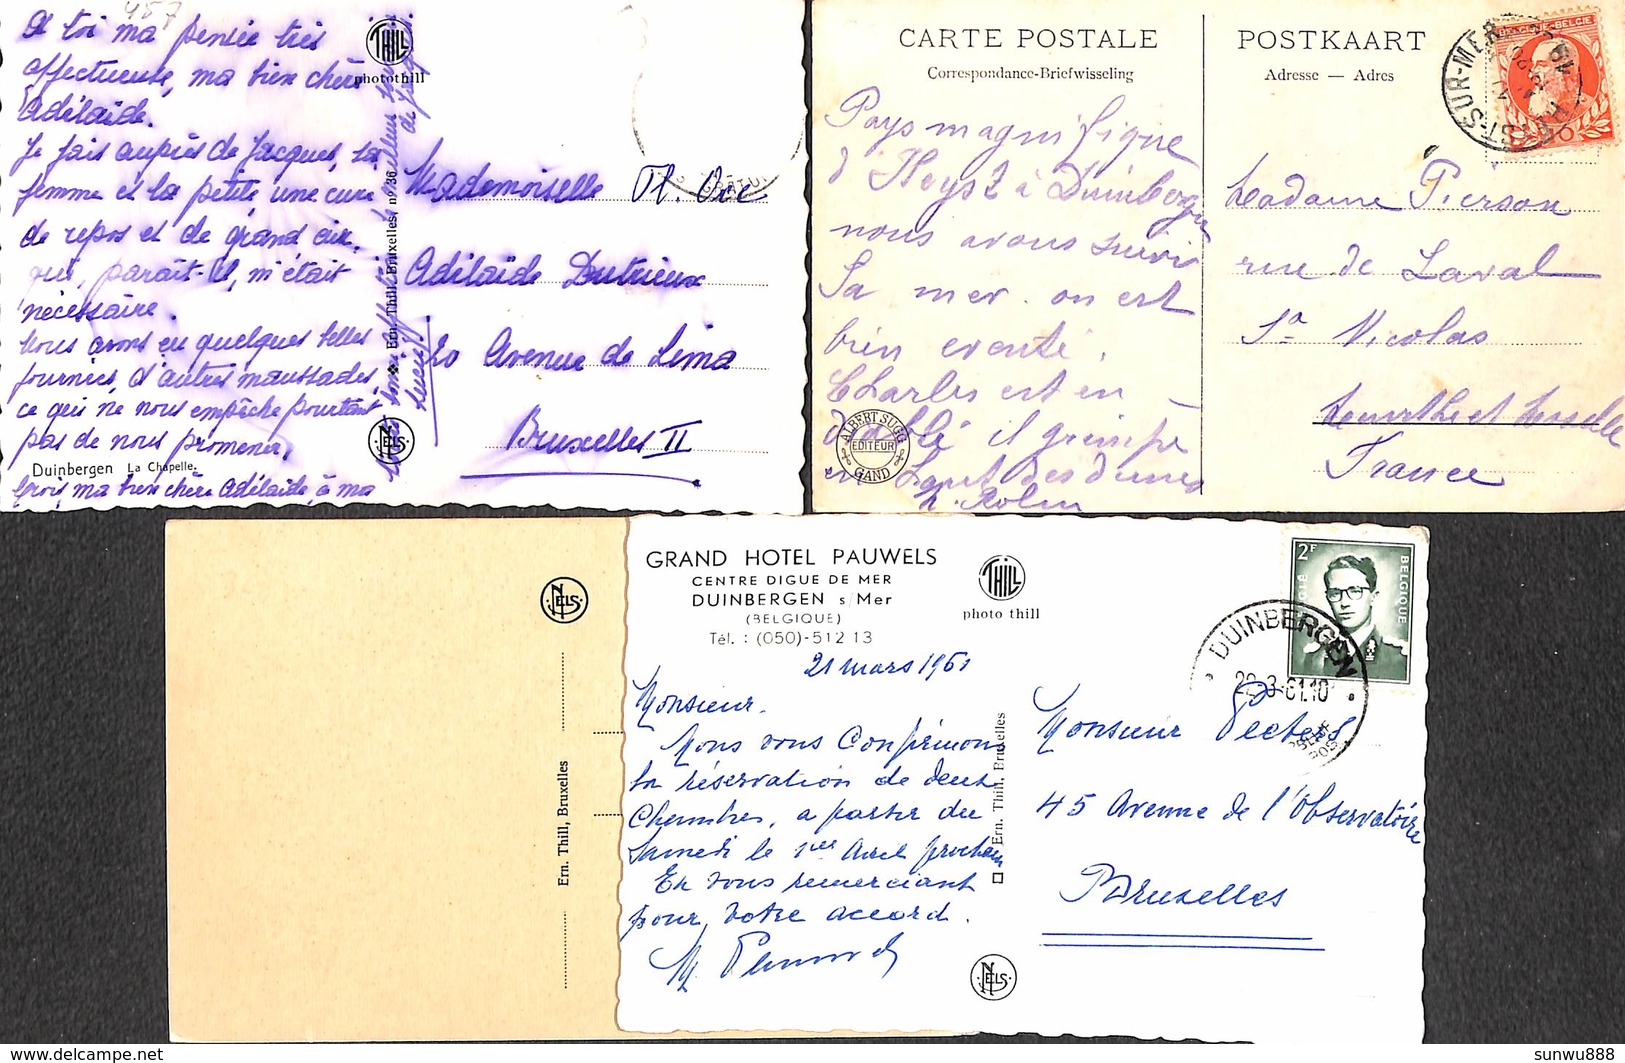 457
A toi ma pensée très
affectueuse, ma bien chère
Adélaïde.
Je fais auprès de Jacques, sa
femme et la petite une cure
de repos et de grand air,
qui, paraît-il, m'était
nécessaire.
Nous avons eu quelques belles
journées, d'autres maussades,
ce qui ne nous empêche pourtant
pas de nous promener.
Duinbergen La Chapelle.
Crois ma bien chère Adélaïde, à ma
THILL
photothill
Ern. Thill, Bruxelles, nº 36
NELS
Mademoiselle
Adélaïde Dutrieux
20 Avenue de Lima
Bruxelles II
CARTE POSTALE
Correspondance-Briefwisseling
POSTKAART
Adresse — Adres
BELGIQUE-BELGIË
10
ST-SUR-MER
Pays magnifique
d'Heyst à Duinbergen
nous avons suivi
la mer. on est
bien eventé.
Charles est en
diable il grimpe
en haut des dunes
ALBERT SUGG
EDITEUR
GAND
Madame Pierson
rue de Laval
St Nicolas
Meurthe et Moselle
France
NELS
Ern. Thill, Bruxelles
GRAND HOTEL PAUWELS
CENTRE DIGUE DE MER
DUINBERGEN s/Mer
(BELGIQUE)
Tél. : (050)-512 13
THILL
photo thill
2F
BELGIQUE
DUINBERGEN
22-3-61.10
21 mars 1961
Monsieur.
Nous vous Confirmons
la réservation de deux
Chambres, a partir du
Samedi le 1er Avril prochain
En vous remerciant
pour votre accord.
Ern. Thill, Bruxelles
NELS
Monsieur Peeters
45 Avenue de l'Observatoire
Bruxelles
https://www.delcampe.net
sunwu888